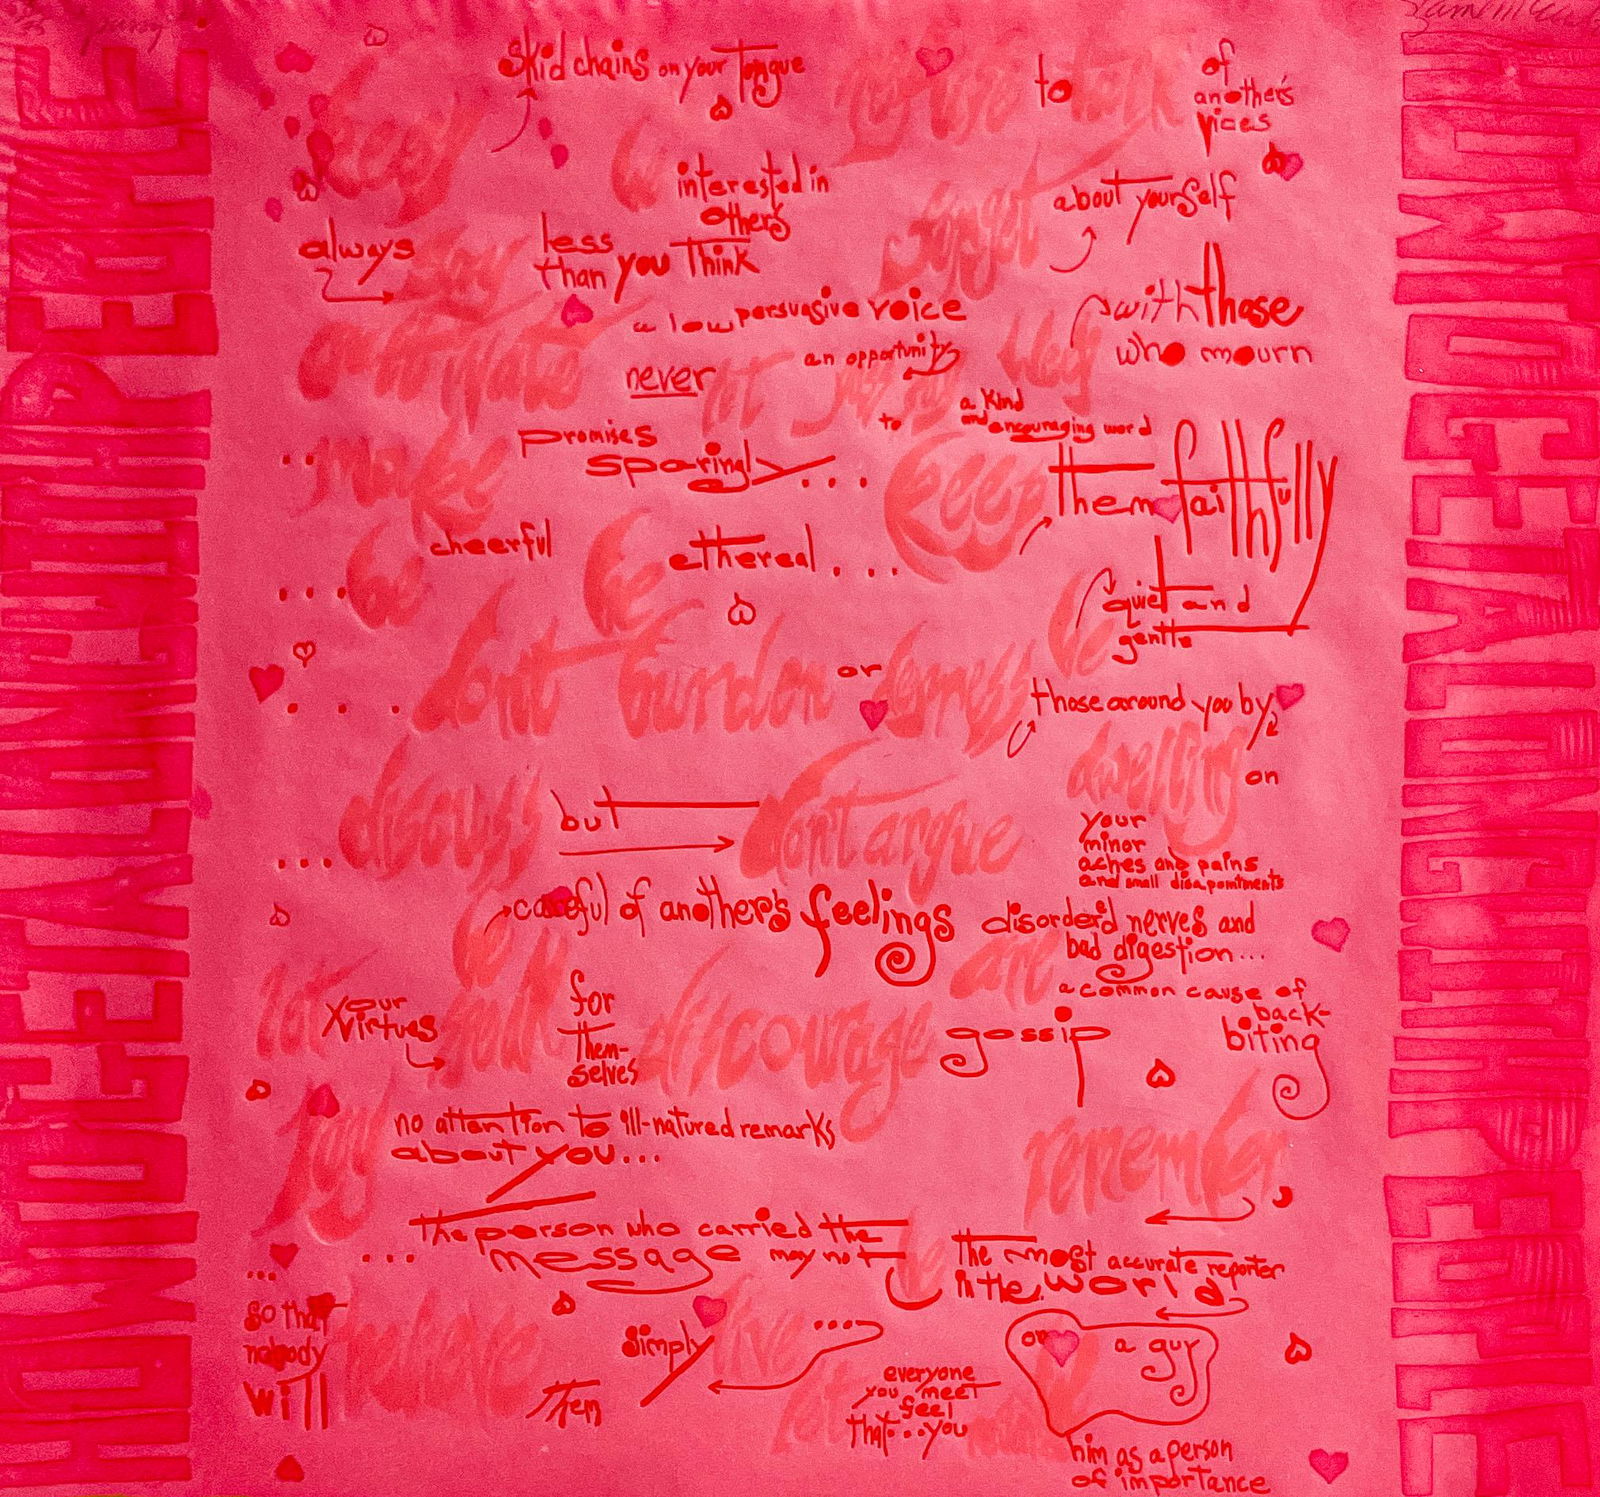 HOW TO GET ALONG WITH PEOPLE
keep skid chains on your tongue
refuse to talk of
another's
vices
be interested in
others
forget about yourself
always say less
than you Think
cultivate a low persuasive voice
never let pass by an opportunity
to
a kind
and encouraging word
with those
who mourn
... make promises
sparingly ...
keep them faithfully
... be cheerful be ethereal ...
be quiet and
gentle
. . . dont burden or depress
those around you by
dwelling on
your
minor
aches and pains
and small disapointments
... discuss but dont argue
be careful of another's feelings
disorder'd nerves and
bad digestion...
are a common cause of
back-
biting
let your
virtues speak for
Them-
selves
discourage gossip
pay no attention to ill-natured remarks
about you...
remember
... The person who carried the
message may not be The most accurate reporter
in the world.
...
so that
nobody
will believe Them
simply live ....
let everyone
you meet
feel
that...you
or a guy
him as a person
of importance
HOW TO GET ALONG WITH PEOPLE